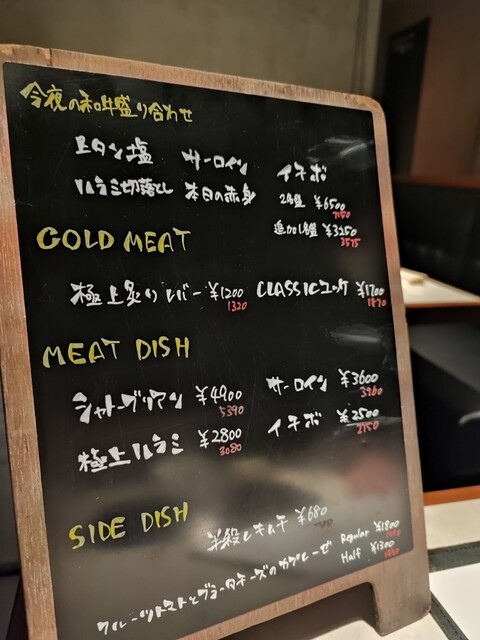 今夜の和牛盛り合わせ
上タン塩 サーロイン イチボ
ハラミ切落とし 本日の赤身 2名盛 ¥6500
7150
追加1名盤 ¥3250
3575
COLD MEAT
極上炙りレバー ¥1200 CLASSICユッケ ¥1700
1320 1870
MEAT DISH
シャトーブリアン ¥4900 サーロイン ¥3600
5390 3960
極上ハラミ ¥2800 イチボ ¥2500
3080 2750
SIDE DISH
半殺しキムチ ¥680
フルーツトマトとブラータチーズのカプレーゼ Regular ¥1800
Half ¥1300